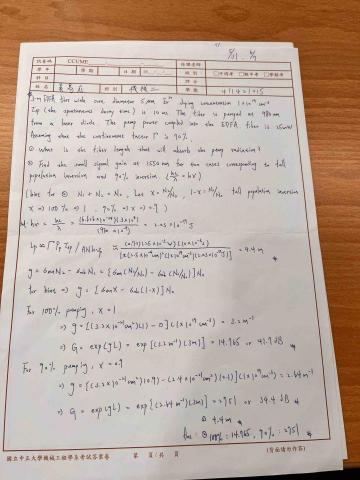 CCUME
學年 學期 日期
科目
姓名 班級 機械二 學號 411421015
3-m EDFA fiber with core diameter 5 μm Er³⁺ doping concentration 1×10¹⁹ cm⁻³
τsp (the spontaneous decay time) is 10 ms. The fiber is pumped at 980 nm
from a laser diode. The pump power coupled into the EDFA fiber is 25mW
Assuming that the confinement factor Γ is 70%
① What is the fiber length that will absorb the pump radiation?
② Find the small signal gain at 1550 nm for two cases corresponding to full
population inversion and 90% inversion
(hint for ② N₁ + N₂ = N₀, Let X = N₂/N₀, 1-X = N₁/N₀ full population inversion
X ⇒ 100% ⇒ 1, 90% ⇒ X ⇒ 0.9)
Lp ≈ ΓPpτsp / ANhνp ≈ = 4.4 m
g = σemN₂ - σabN₁ = [σem(N₂/N₀) - σab(N₁/N₀)]N₀
for bias ⇒ g = [σemX - σab(1-X)]N₀
For 100% pumping, X = 1
⇒ g = [(3.2×10⁻²¹ cm²)(1) - 0](1×10¹⁹ cm⁻³) = 3.2 m⁻¹
⇒ G = exp(gL) = exp[(3.2 m⁻¹)(3m)] = 14,765 or 41.7 dB
For 90% pumping, X = 0.9
⇒ g = [(3.2×10⁻²¹ cm²)(0.9) - (2.4×10⁻²¹ cm²)(0.1)](1×10¹⁹ cm⁻³) = 2.64 m⁻¹
⇒ G = exp(gL) = exp[(2.64 m⁻¹)(3m)] = 2751 or 34.4 dB
① 4.4 m
Ans: ② 100%: 14,765, 90%: 2751
國立中正大學機械工程學系考試答案卷 第 頁/共 頁 (背面請勿作答)